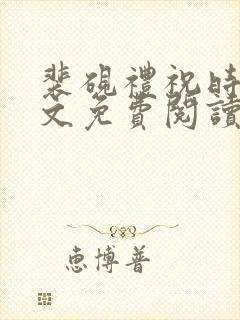 裴硯禮祝時
文免費閱讀
惠博普